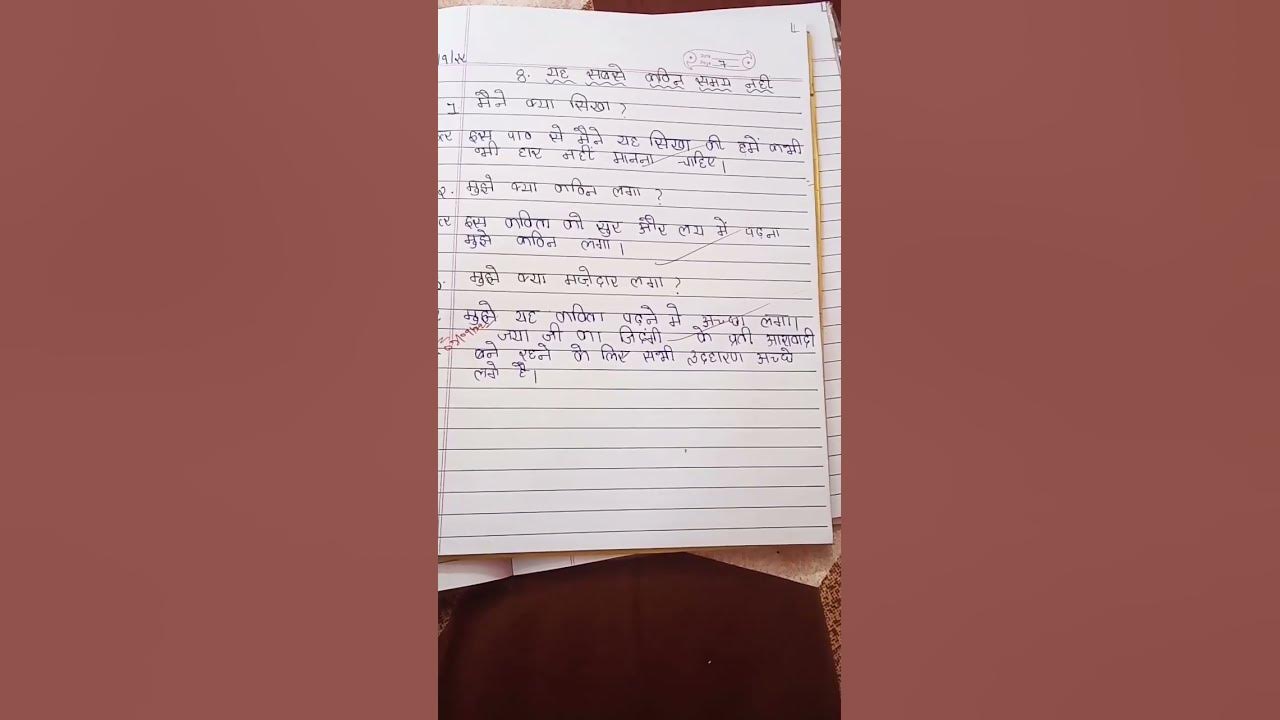 8. यह सबसे कठिन समय नहीं
1 मैने क्या सिखा ?
इस पाठ से मैने यह सिखा की हमें कभी
भी हार नहीं मानना चाहिए।
२. मुझे क्या कठिन लगा ?
इस कविता को सुर और लय में पढ़ना
मुझे कठिन लगा।
मुझे क्या मज़ेदार लगा ?
मुझे यह कविता पढ़ने मे अच्छा लगा।
जया जी का जिंदगी के प्रती आशावादी
बने रहने के लिए सभी उदहारण अच्छे
लगे है।